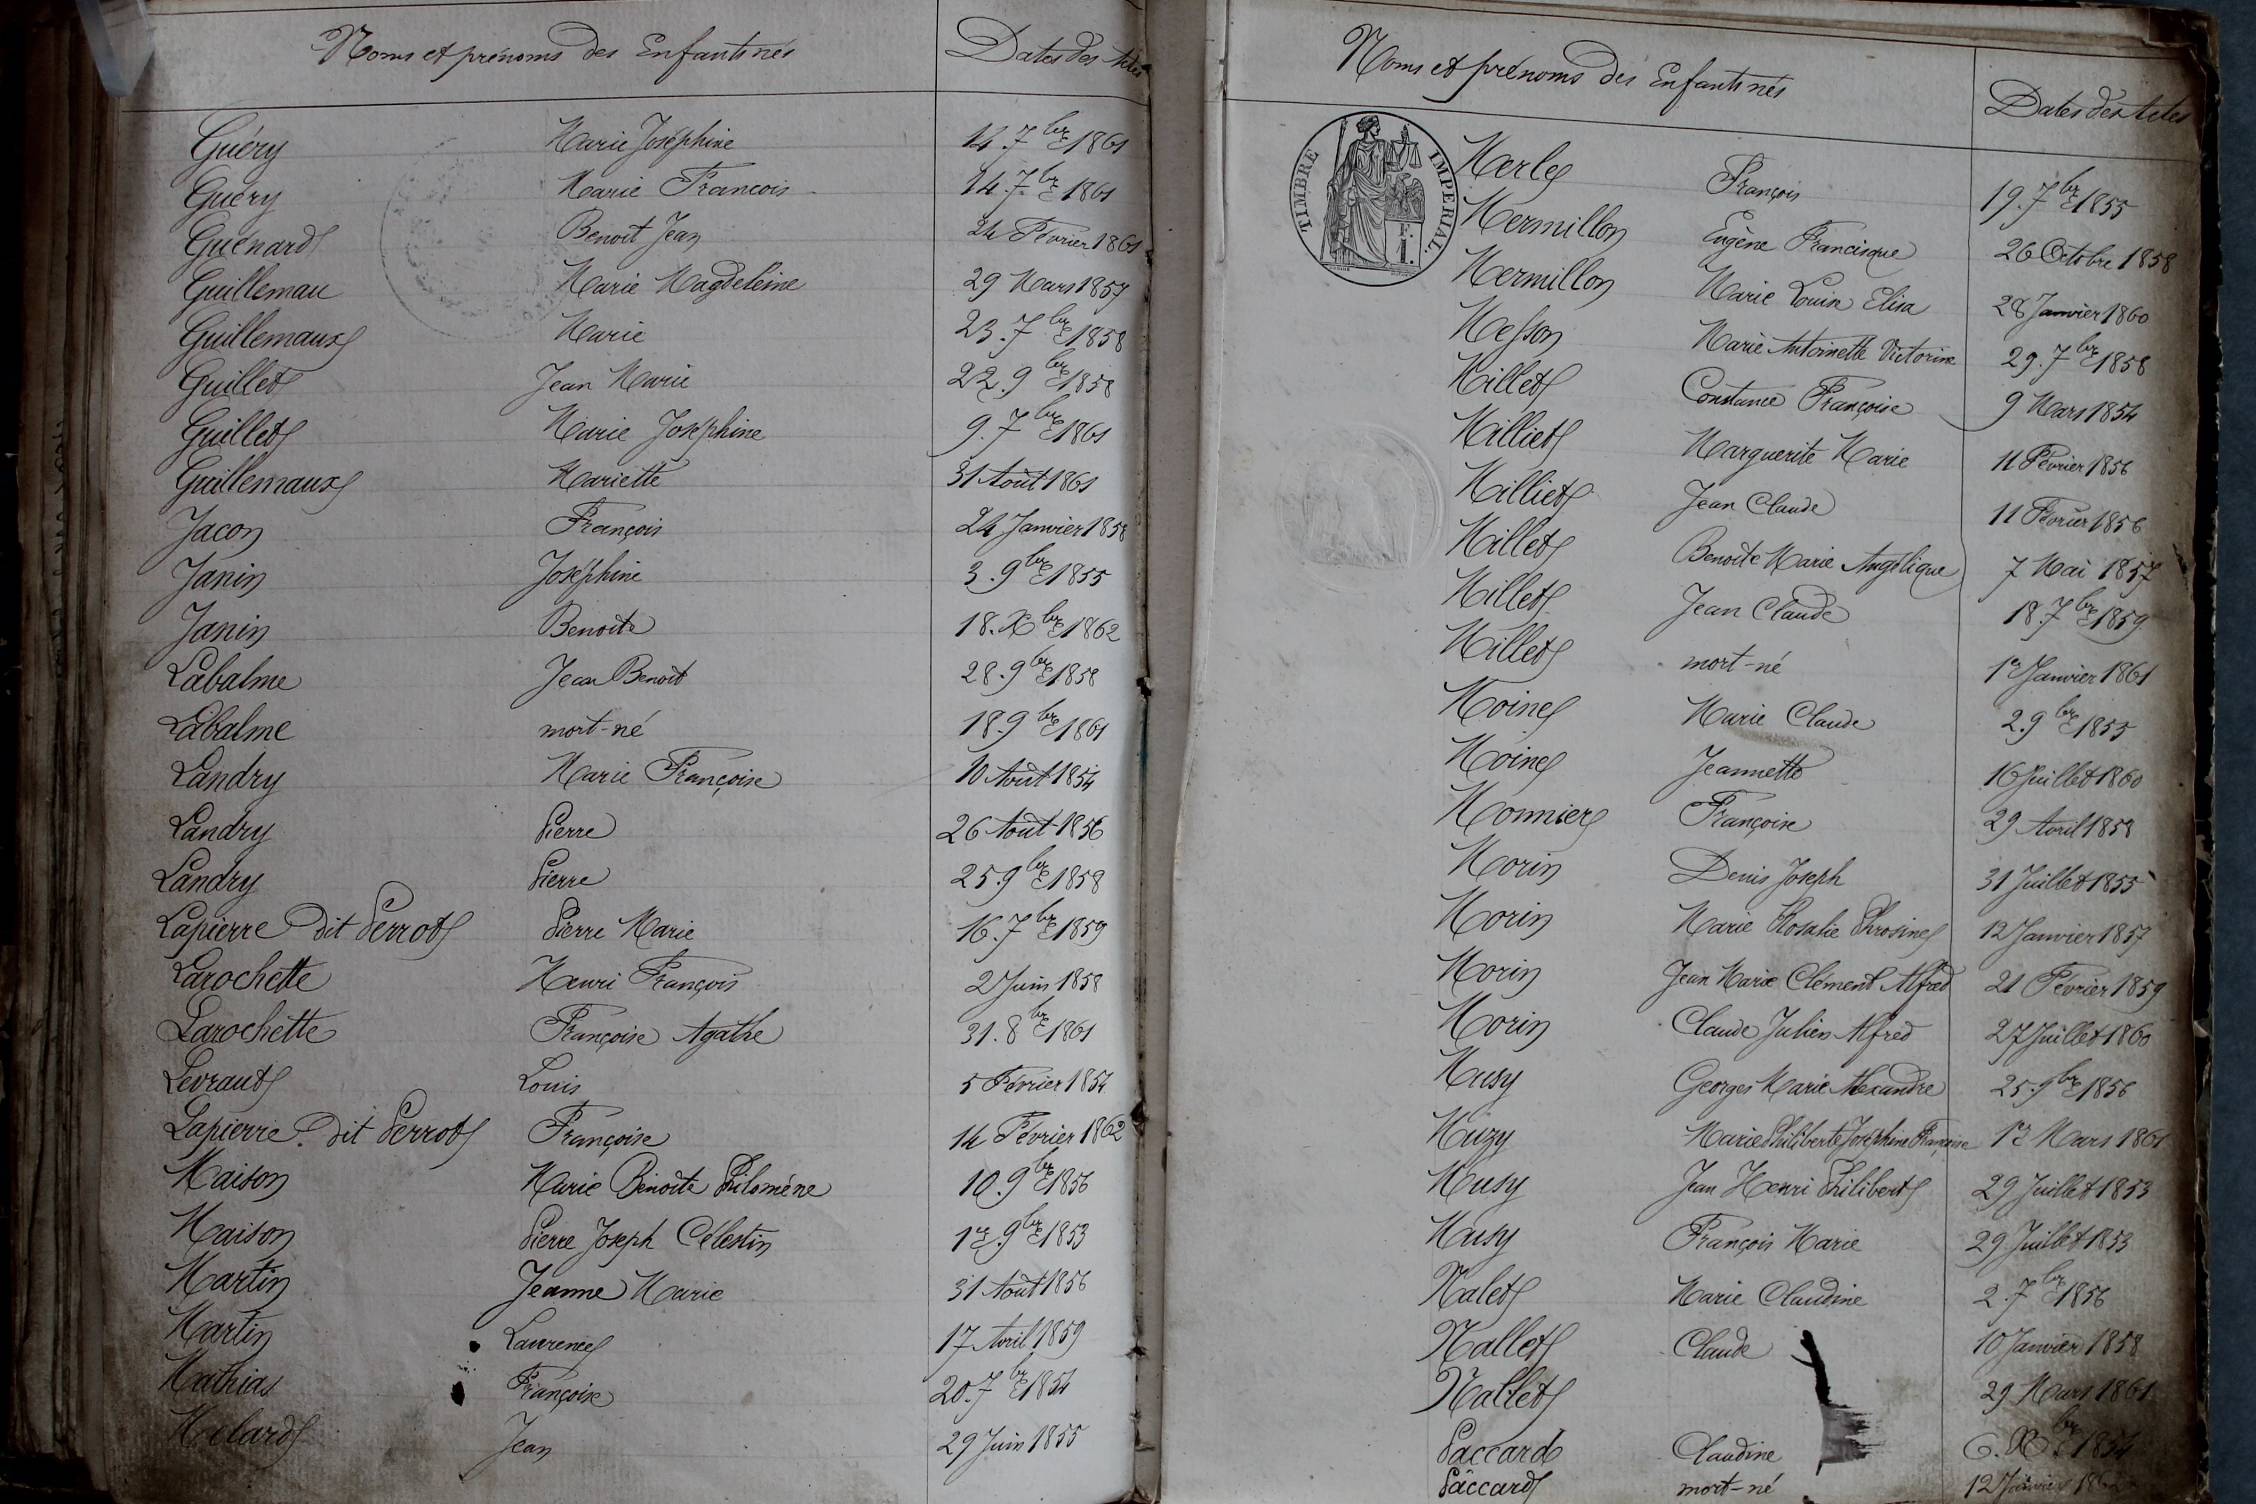 Noms et prénoms des Enfants nés Dates des Actes
Guéry Marie Joséphine 14. 7bre 1861
Guéry Marie Francois 14. 7bre 1861
Guénard Benoit Jean 24 Février 1861
Guillemau Marie Magdeleine 29 Mars 1857
Guillemaux Marie 23. 7bre 1858
Guillet Jean Marie 22. 9bre 1858
Guillet Marie Josephine 9. 7bre 1861
Guillemaux Mariette 31 Août 1861
Jacon François 24 Janvier 1858
Janin Joséphine 3. 9bre 1855
Janin Benoite 18. Xbre 1862
Labalme Jean Benoit 28. 9bre 1858
Labalme mort-né 18. 9bre 1861
Landry Marie Françoise 10 Août 1854
Landry Pierre 26 Août 1856
Landry Pierre 25. 9bre 1858
Lapierre dit Perrot Pierre Marie 16. 7bre 1859
Larochette Henri François 2 Juin 1858
Larochette Françoise Agathe 31. 8bre 1861
Levraut Louis 5 Février 1854
Lapierre dit Perrot Françoise 14 Février 1862
Maison Marie Benoite Philomène 10. 9bre 1856
Maison Pierre Joseph Célestin 1er 9bre 1853
Martin Jeanne Marie 31 Août 1856
Martin Laurence 17 Avril 1859
Mathias Françoise 20. 7bre 1854
Melard Jean 29 Juin 1855
Noms et prénoms des Enfants nés Dates des Actes
TIMBRE IMPERIAL
F. I.
Merle François 19. 7bre 1855
Mermillon Eugène Francisque 26 Octobre 1858
Mermillon Marie Louise Elisa 28 Janvier 1860
Messon Marie Antoinette Victorine 29. 7bre 1858
Millet Constance Françoise 9 Mars 1854
Milliet Marguerite Marie 11 Février 1856
Milliet Jean Claude 11 Février 1856
Millet Benoite Marie Angélique 7 Mai 1857
Millet Jean Claude 18. 7bre 1859
Millet mort-né 1er Janvier 1861
Moine Marie Claude 2. 9bre 1855
Moine Jeannette 16 Juillet 1860
Monnier Françoise 29 Avril 1858
Morin Denis Joseph 31 Juillet 1855
Morin Marie Rosalie Phrosine 12 Janvier 1857
Morin Jean Marie Clément Alfred 21 Février 1859
Morin Claude Julien Alfred 27 Juillet 1860
Musy Georges Marie Alexandre 25. 9bre 1856
Muzy Marie Philiberte Joséphine Françoise 1er Mars 1861
Musy Jean Henri Philibert 29 Juillet 1853
Musy François Marie 29 Juillet 1853
Nalet Marie Claudine 2. 7bre 1856
Nallet Claude 10 Janvier 1858
Nallet 29 Mars 1861
Paccard Claudine 6. Xbre 1854
Paccard mort-né 12 Janvier